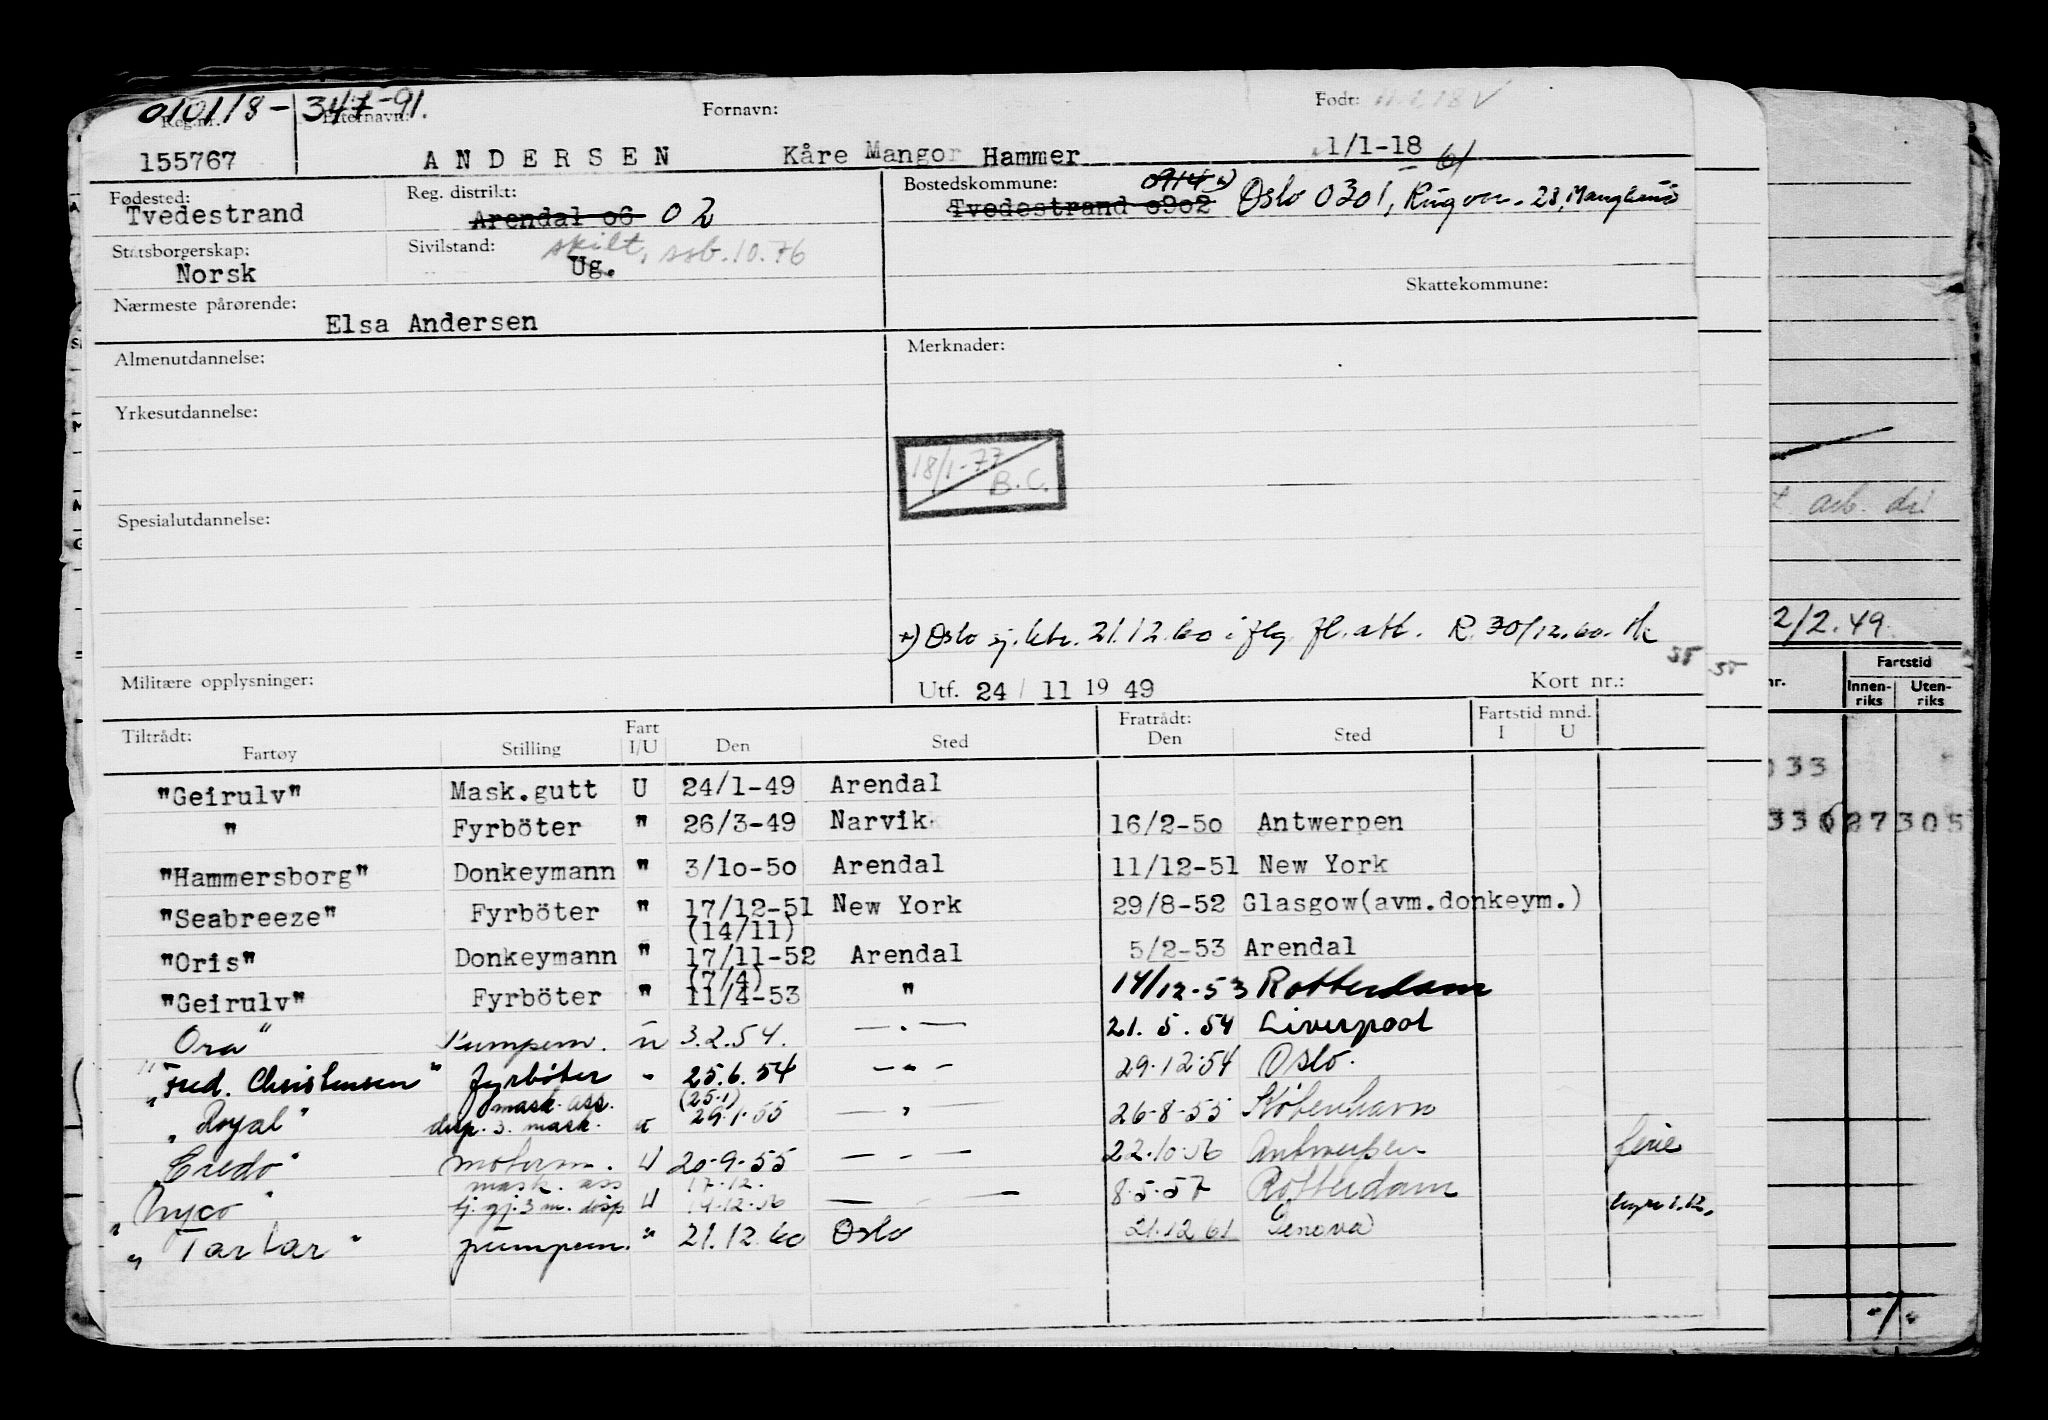 010118-347-91.
Reg.nr. Etternavn: Fornavn: Født:
155767 ANDERSEN Kåre Mangor Hammer 1/1-18
Fødested: Reg. distrikt: Bostedskommune:
Tvedestrand Arendal 06 02 Tvedestrand 0902 0914 Oslo 0301, 61
Statsborgerskap: Sivilstand: skilt, 10.76
Norsk Ug.
Skattekommune:
Nærmeste pårørende:
Elsa Andersen
Almenutdannelse: Merknader:
Yrkesutdannelse:
18/1-77
B.C.
Spesialutdannelse:
*) Oslo sj.ktr. 21.12.60 i flg. fl.att. R. 30/12.60.
Militære opplysninger: Utf. 24/11 1949 Kort nr.:
Tiltrådt: Fratrådt: Fartstid mnd.
Fartøy Stilling Fart I/U Den Sted Den Sted I U
"Geirulv" Mask.gutt U 24/1-49 Arendal
" Fyrböter " 26/3-49 Narvik 16/2-50 Antwerpen
"Hammersborg" Donkeymann " 3/10-50 Arendal 11/12-51 New York
"Seabreeze" Fyrböter " 17/12-51 New York 29/8-52 Glasgow(avm.donkeym.)
(14/11)
"Oris" Donkeymann " 17/11-52 Arendal 5/2-53 Arendal
(7/4)
"Geirulv" Fyrböter " 11/4-53 " 14/12-53 Rotterdam
"Ora" Pumpem. u 3.2.54. — . — 21.5.54 Liverpool
"Fred. Christensen" fyrböter " 25.6.54 — " — 29.12.54 Oslo.
mask. ass. (25.1)
"Royal" disp. 3. mask. u 29.1.55 — " — 26-8-55 København
"Credo" motorm. U 20-9-55 — " — 22.10.56 Antwerpen ferie
mask. ass 17.12.
"Nyco" tj. gj. 3 m. disp U 14.12.56 — " — 8.5.57 Rotterdam
"Tartar" pumpem. " 21.12.60 Oslo 21.12.61 Genova
2/2.49
Fartstid
Innen-riks Uten-riks
033